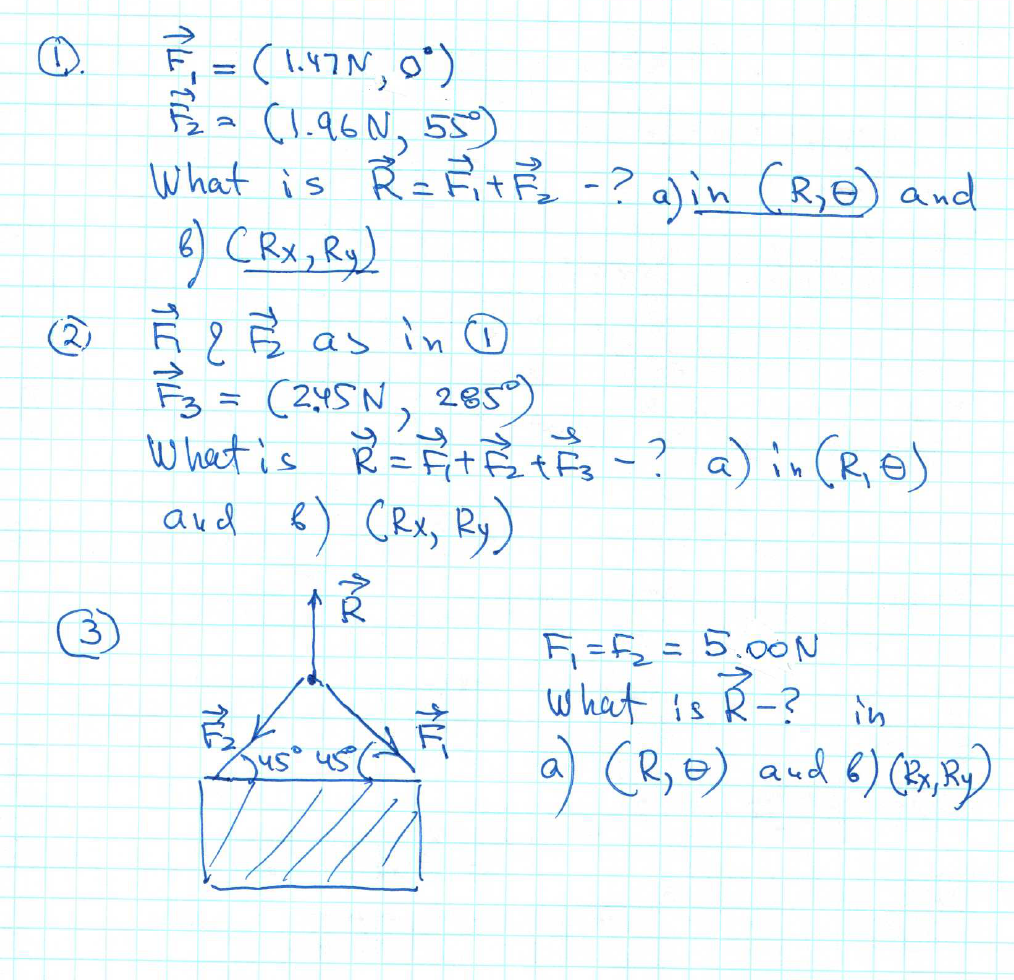 ①. F⃗₁ = (1.47N, 0°)
F⃗₂ = (1.96N, 55°)
What is R⃗ = F⃗₁ + F⃗₂ -? a) in (R, θ) and
b) (Rx, Ry)
② F⃗₁ & F⃗₂ as in ①
F⃗₃ = (2.45N, 285°)
What is R⃗ = F⃗₁ + F⃗₂ + F⃗₃ -? a) in (R, θ)
and b) (Rx, Ry)
③
R⃗
F⃗₂
F⃗₁
45° 45°
F₁ = F₂ = 5.00N
What is R⃗ -? in
a) (R, θ) and b) (Rx, Ry)